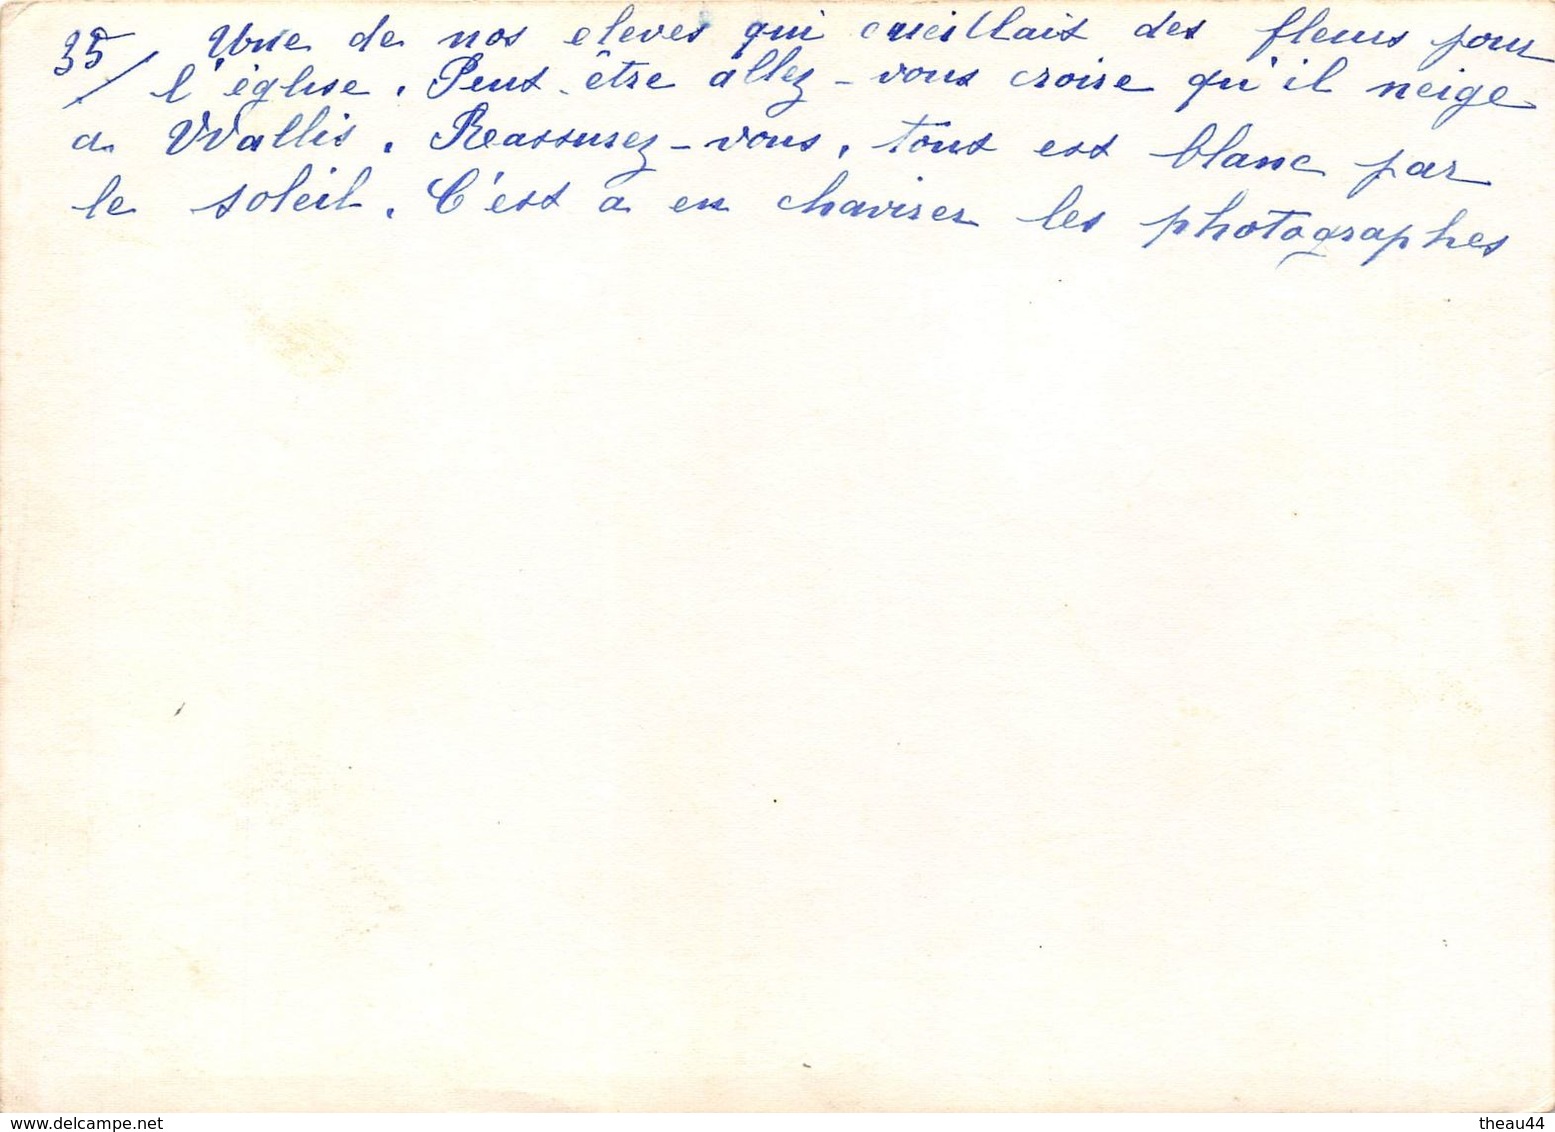 35/ Une de nos eleves qui cueillait des fleurs pour
l'église. Peut-être allez-vous croire qu'il neige
a Wallis. Reassurez-vous, tout est blanc par
le soleil. C'est a en chavirer les photographes
www.delcampe.net
theau44